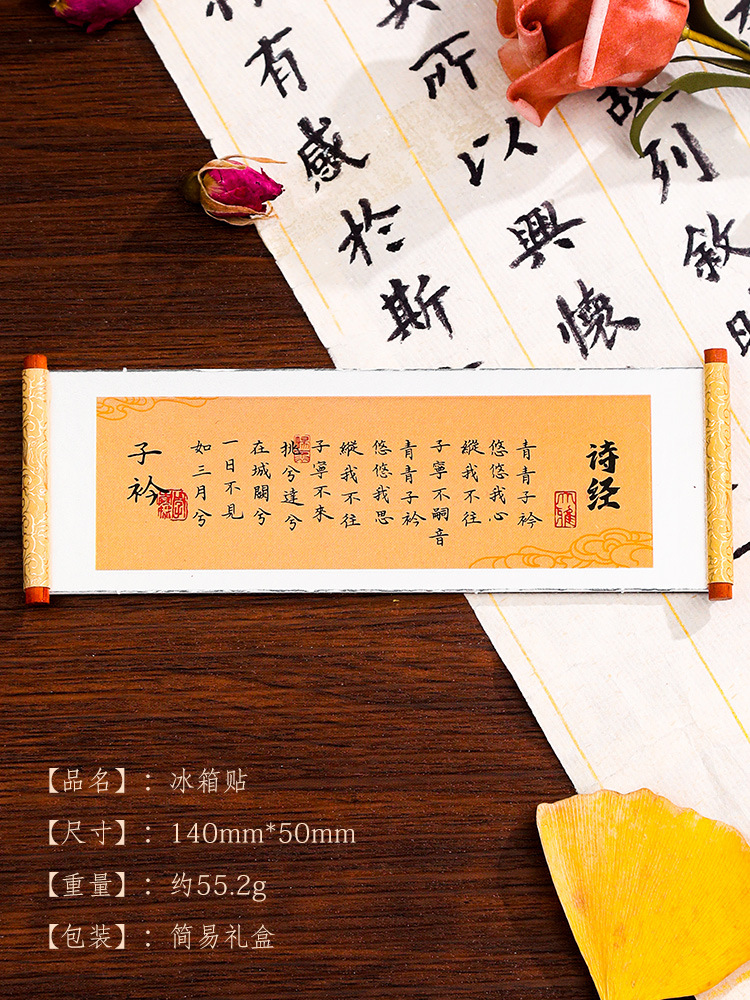 列敘
所以興懷
有感於斯
诗经
青青子衿
悠悠我心
縱我不往
子寧不嗣音
青青子衿
悠悠我思
縱我不往
子寧不來
挑兮達兮
在城闕兮
一日不見
如三月兮
子衿
【品名】：冰箱贴
【尺寸】：140mm*50mm
【重量】：约55.2g
【包装】：简易礼盒